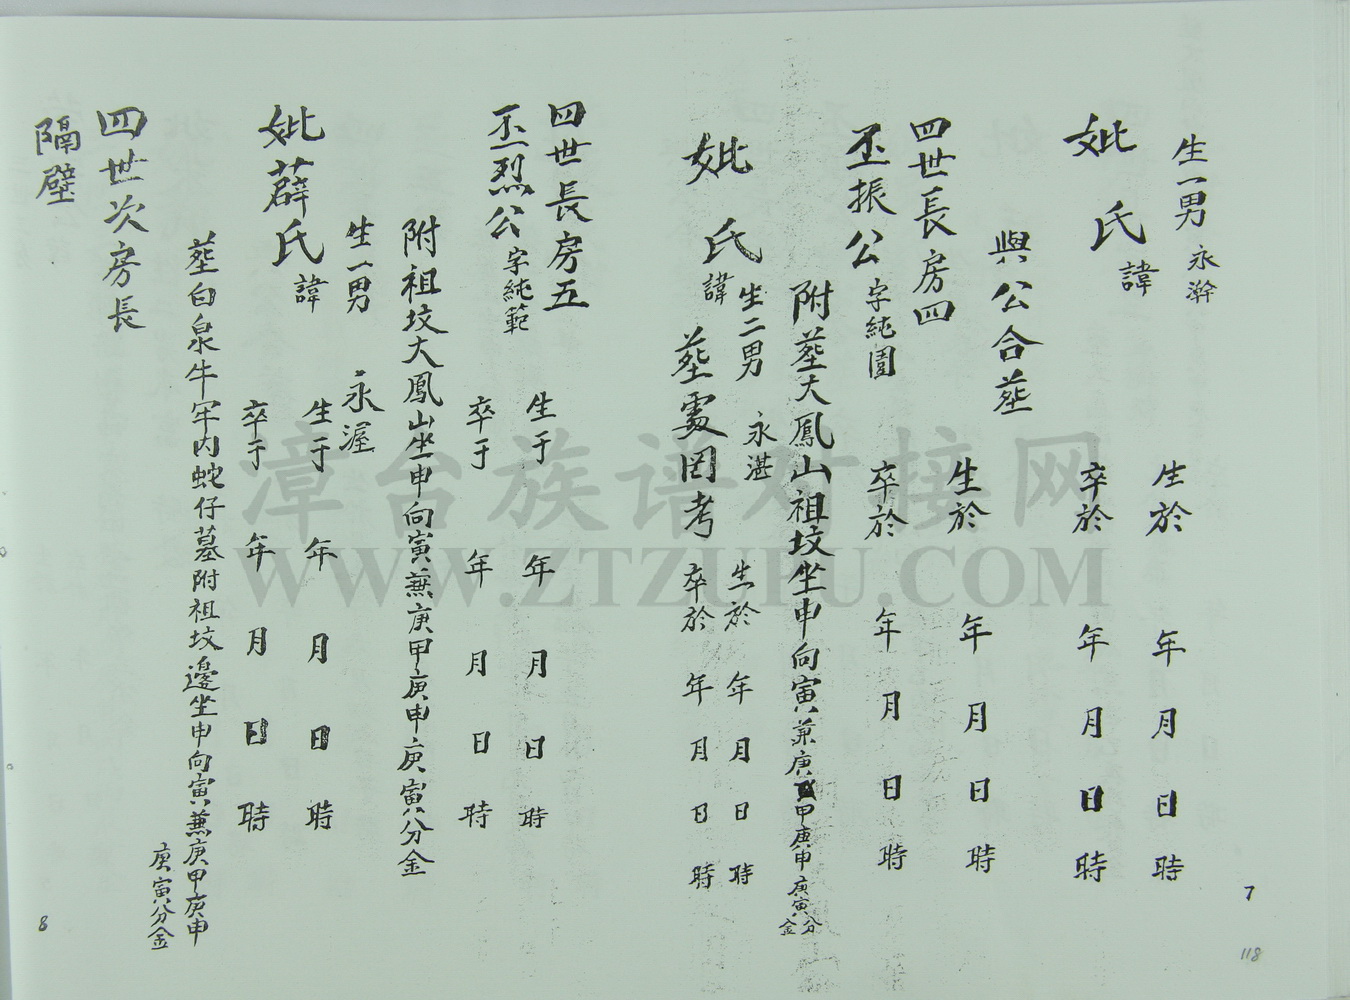 生一男 永澣
妣 氏 諱 生於 年 月 日 時
卒於 年 月 日 時
與公合塟
四世長房四
丕振公 字純園 生於 年 月 日 時
卒於 年 月 日 時
附塟大鳳山祖坟坐申向寅兼庚甲庚申庚寅分金
妣 氏 諱 生二男 永湛 生於 年 月 日 時
塟處罔考 卒於 年 月 日 時
四世長房五
丕烈公 字純範 生于 年 月 日 時
卒于 年 月 日 時
附祖坟大鳳山坐申向寅兼庚甲庚申庚寅分金
生一男 永渥
妣薛氏 諱 生于 年 月 日 時
卒于 年 月 日 時
塟白泉牛牢内蛇仔墓附祖坟邊坐申向寅兼庚甲庚申
庚寅分金
四世次房長
隔壁
7
118
8
漳台族谱对接网
WWW.ZTZUPU.COM